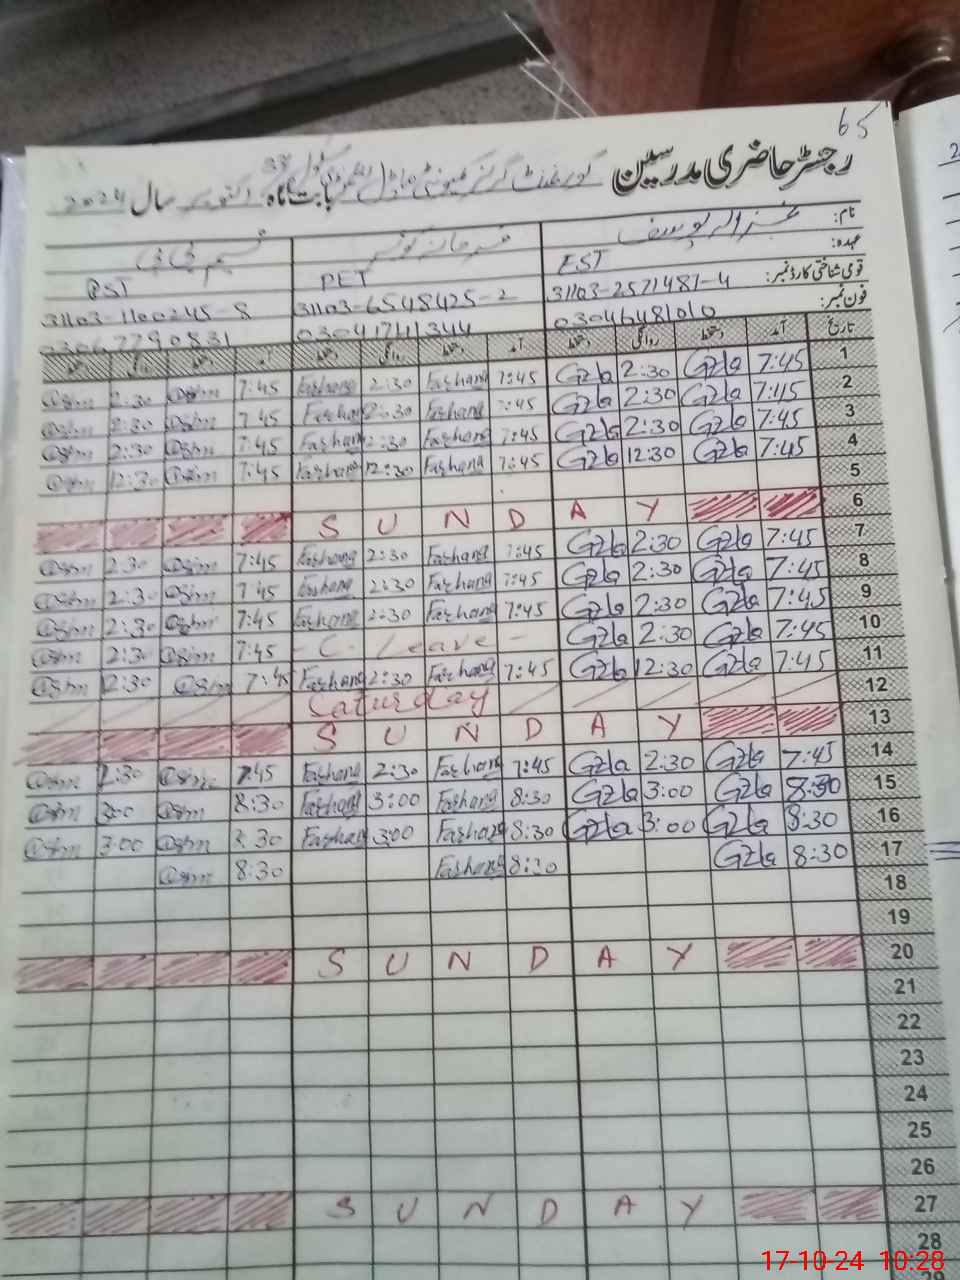 65
رجسٹر حاضری مدرسین گورنمنٹ گرلز کمیونٹی ماڈل سکول بابت ماہ اکتوبر سال 2024
نام: غزالہ یوسف فرحانہ کوثر نسیم بی بی
عہدہ: EST PET PST
قومی شناختی کارڈ نمبر: 31103-2571487-4 31103-6548425-2 31103-1100245-8
فون نمبر: 03046481010 03041741344 03067790831
تاریخ آمد دستخط روانگی دستخط آمد دستخط روانگی دستخط آمد دستخط روانگی دستخط
1 7:45 Gzla 2:30 Gzla 7:45 Farhana 2:30 Farhana 7:45 2:30
2 7:45 Gzla 2:30 Gzla 7:45 Farhana 2:30 Farhana 7:45 2:30
3 7:45 Gzla 2:30 Gzla 7:45 Farhana 2:30 Farhana 7:45 2:30
4 7:45 Gzla 12:30 Gzla 7:45 Farhana 12:30 Farhana 7:45 12:30
5
6 S U N D A Y
7 7:45 Gzla 2:30 Gzla 7:45 Farhana 2:30 Farhana 7:45 2:30
8 7:45 Gzla 2:30 Gzla 7:45 Farhana 2:30 Farhana 7:45 2:30
9 7:45 Gzla 2:30 Gzla 7:45 Farhana 2:30 Farhana 7:45 2:30
10 7:45 Gzla 2:30 Gzla - C. Leave - 7:45 2:30
11 7:45 Gzla 12:30 Gzla 7:45 Farhana 12:30 Farhana 7:45 12:30
12 Saturday
13 S U N D A Y
14 7:45 Gzla 2:30 Gzla 7:45 Farhana 2:30 Farhana 7:45 2:30
15 8:30 Gzla 3:00 Gzla 8:30 Farhana 3:00 Farhana 8:30 3:00
16 8:30 Gzla 3:00 Gzla 8:30 Farhana 3:00 Farhana 8:30 3:00
17 8:30 Gzla 8:30 Farhana 8:30
18
19
20 S U N D A Y
21
22
23
24
25
26
27 S U N D A Y
28
29
17-10-24 10:28